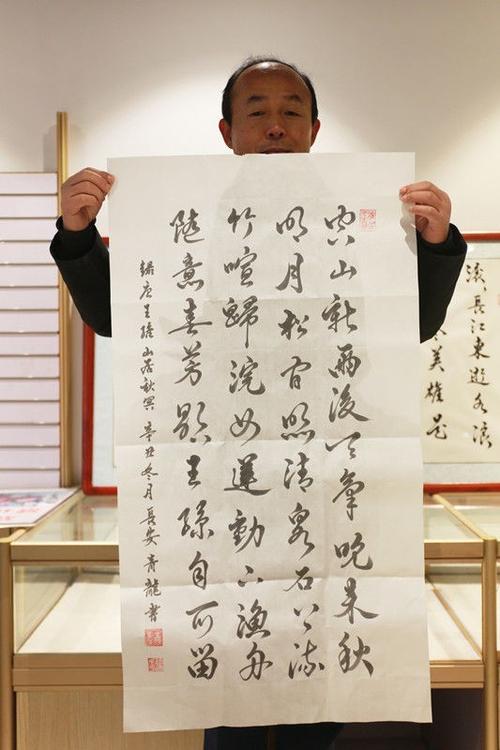 空山新雨後天氣晚来秋
明月松间照清泉石上流
竹喧歸浣女蓮動下漁舟
随意春芳歇王孫自可留
錄唐王維山居秋冥 辛丑冬月長安青龍書
滚長江東逝水浪
英雄是